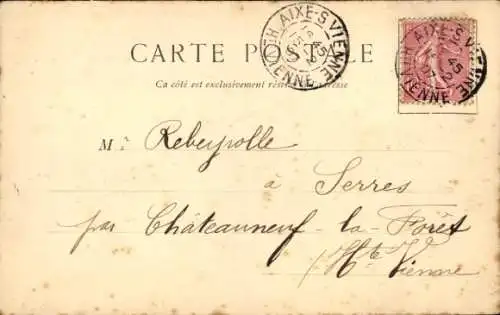 CARTE POSTALE
Ca côté est exclusivement réservé à l'adresse
AIXE-S-VIENNE
HTE VIENNE
AIXE-S-VIENNE
VIENNE
Mr Rebeyrolle
à Serres
par Châteauneuf-la-Forêt
(Hte Vienne